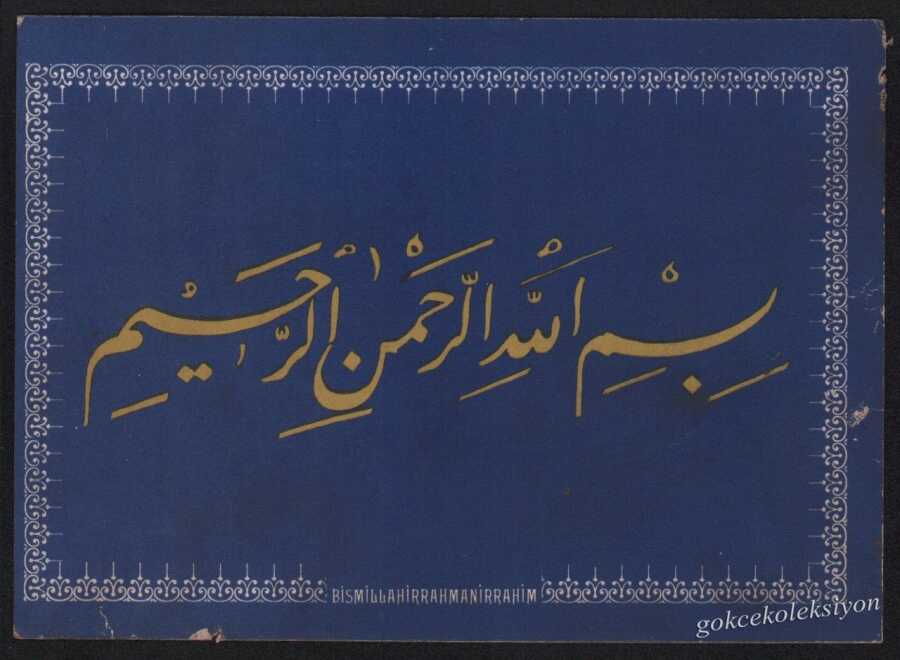 بِسْمِ اللّٰهِ الرَّحْمٰنِ الرَّحِيمِ
BİSMİLLAHİRRAHMANİRRAHİM
gokcekoleksiyon